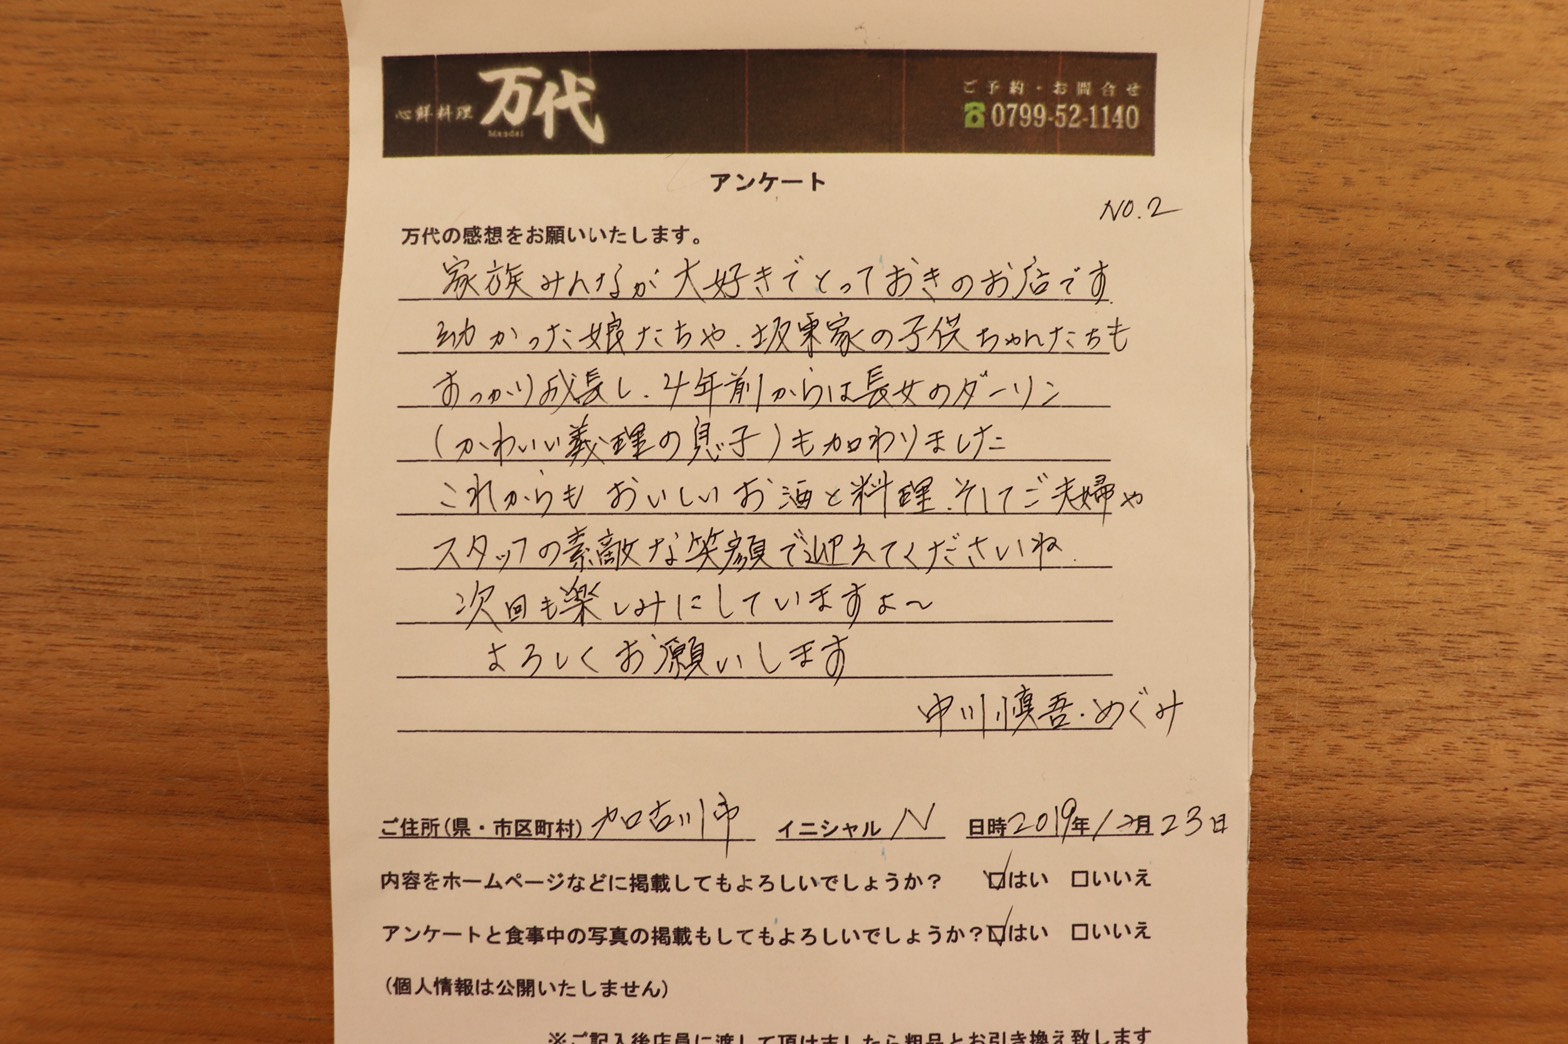 心鮮料理 万代
Mandai
ご予約・お問合せ
☎0799-52-1140
アンケート
NO.2
万代の感想をお願いいたします。
家族みんなが大好きでとっておきのお店です
幼かった娘たちや、坂東家の子供ちゃんたちも
すっかり成長し、4年前からは長女のダーリン
(かわいい義理の息子)も加わりました
これからもおいしいお酒と料理、そしてご夫婦や
スタッフの素敵な笑顔で迎えてくださいね.
次回も楽しみにしていますよ〜
よろしくお願いします
中川慎吾・めぐみ
ご住所(県・市区町村) 加古川市 イニシャル N 日時2019年12月23日
内容をホームページなどに掲載してもよろしいでしょうか? ☑はい □いいえ
アンケートと食事中の写真の掲載もしてもよろしいでしょうか?☑はい □いいえ
(個人情報は公開いたしません)
※ご記入後店員に渡して頂けましたら粗品とお引き換え致します